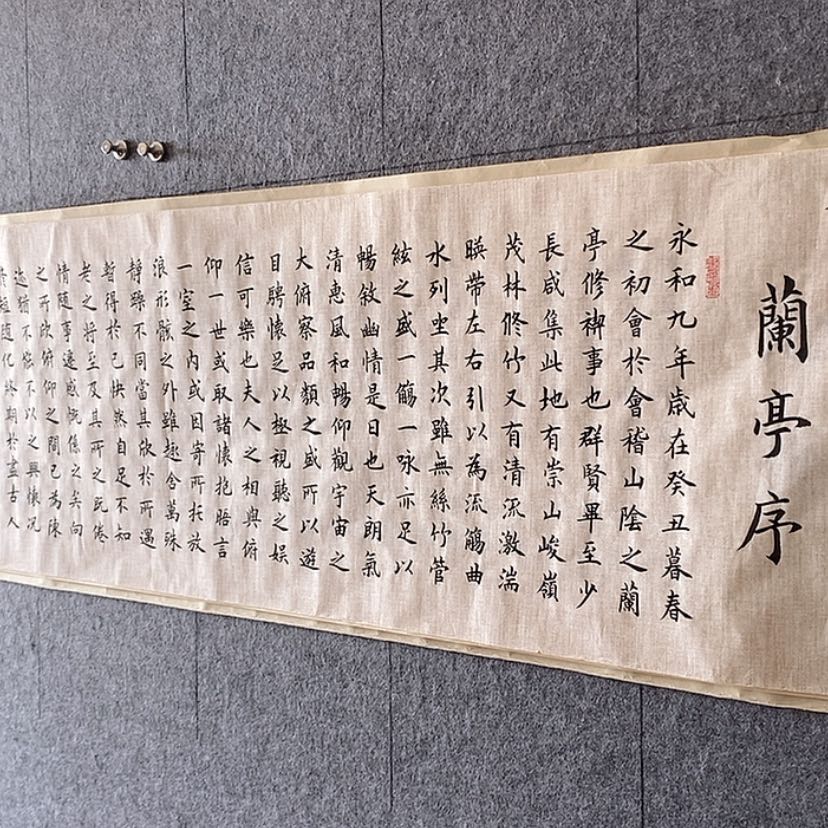 蘭亭序
永和九年歲在癸丑暮春
之初會於會稽山陰之蘭
亭修禊事也群賢畢至少
長咸集此地有崇山峻嶺
茂林修竹又有清流激湍
暎帶左右引以為流觴曲
水列坐其次雖無絲竹管
絃之盛一觴一咏亦足以
暢敘幽情是日也天朗氣
清惠風和暢仰觀宇宙之
大俯察品類之盛所以遊
目騁懷足以極視聽之娛
信可樂也夫人之相與俯
仰一世或取諸懷抱晤言
一室之內或因寄所托放
浪形骸之外雖趣舍萬殊
靜躁不同當其欣於所遇
暫得於己快然自足不知
老之將至及其所之既倦
情隨事遷感慨係之矣向
之所欣俯仰之間已為陳
迹猶不能不以之興懷況
短隨化終期於盡古人